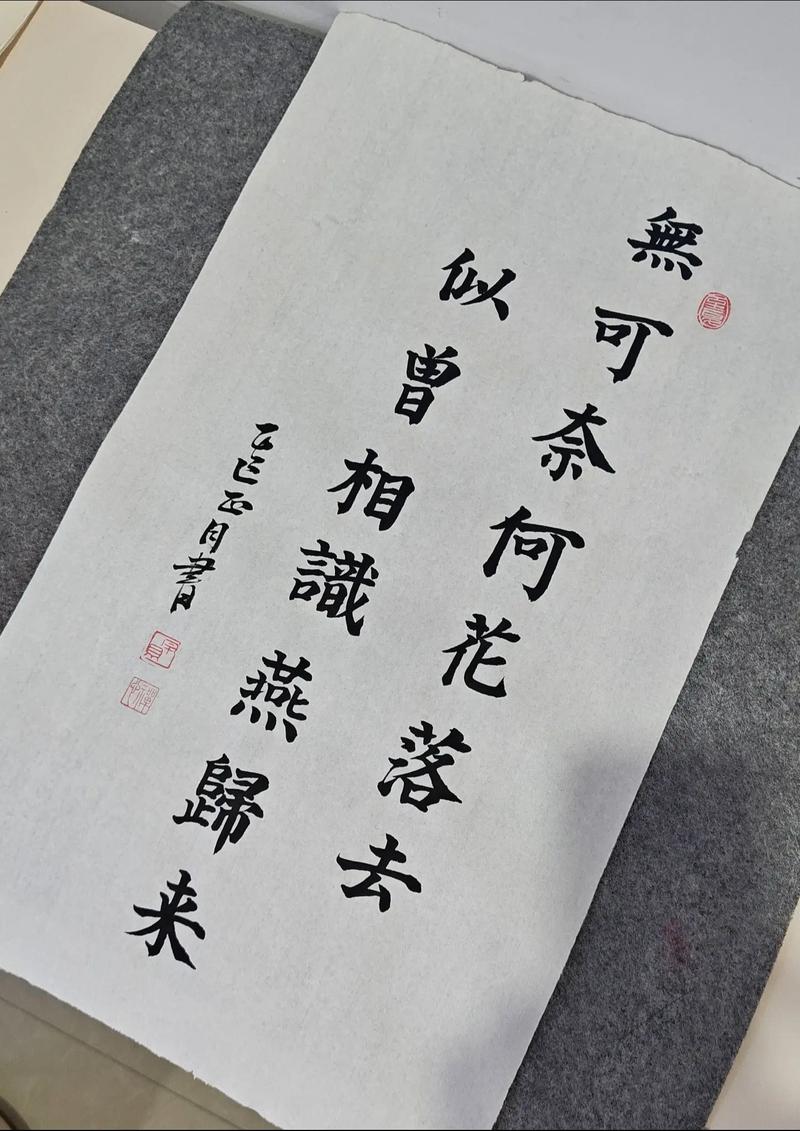 無可奈何花落去
似曾相識燕歸来
乙巳正月書